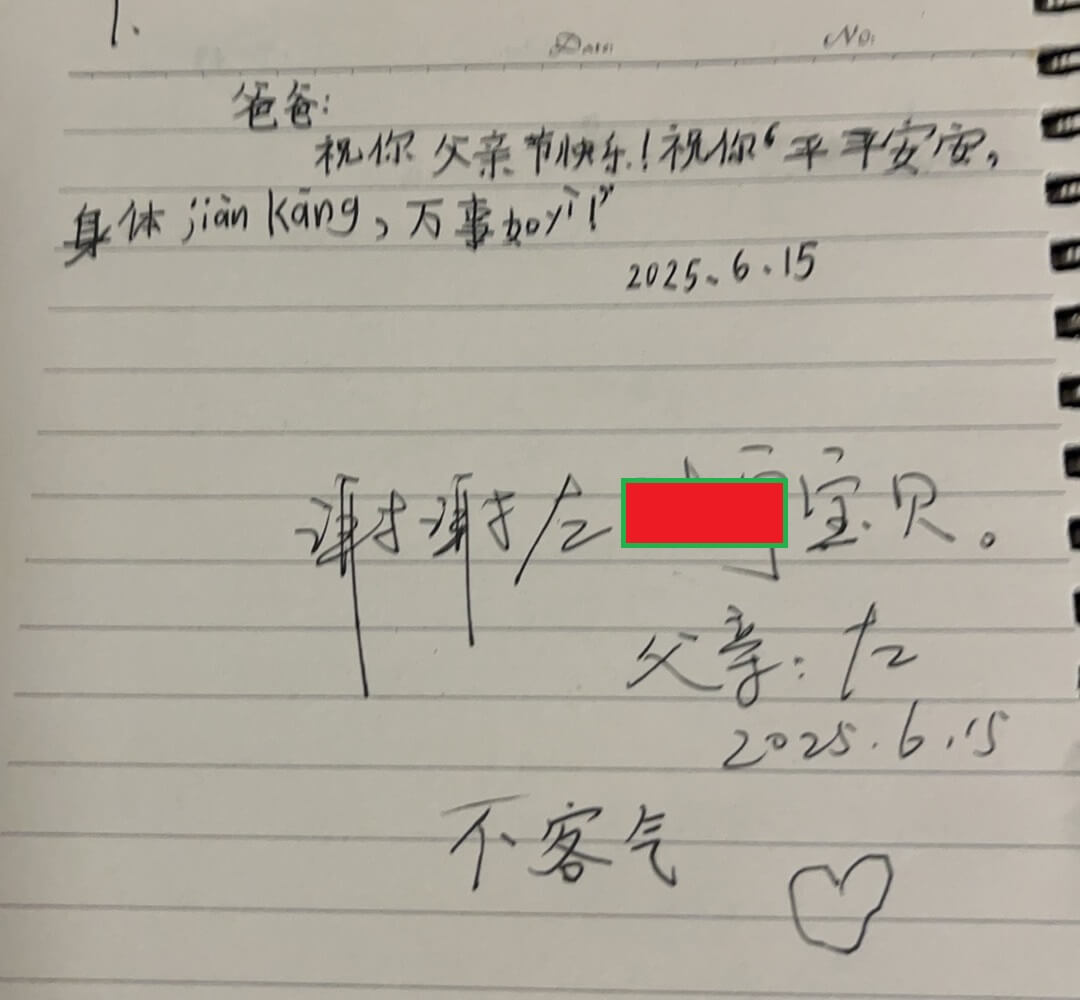 1.
Date: No:
爸爸:
祝你父亲节快乐!祝你“平平安安,
身体jiàn kāng,万事如yì!”
2025.6.15
谢谢左 宝贝。
父亲:左
2025.6.15
不客气